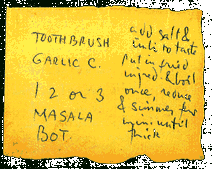 TOOTHBRUSH
GARLIC C.
1 2 or 3
MASALA
BOT.
add salt &
to taste
put in fried
ingred. & boil
once, reduce
& simmer
until
thick